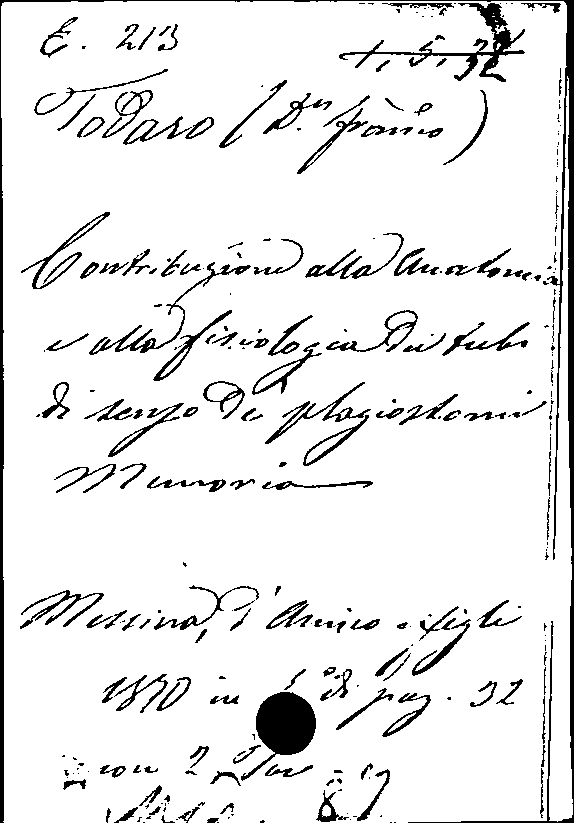 E. 213
1, 5, 32
Todaro (D.r Franco)
Contribuzione alla Anatomia
e alla fisiologia dei tubi
di senso de' plagiostomi
Memoria
Messina, d'Amico e figli
1870 in di pag. 32
con 2 Tav